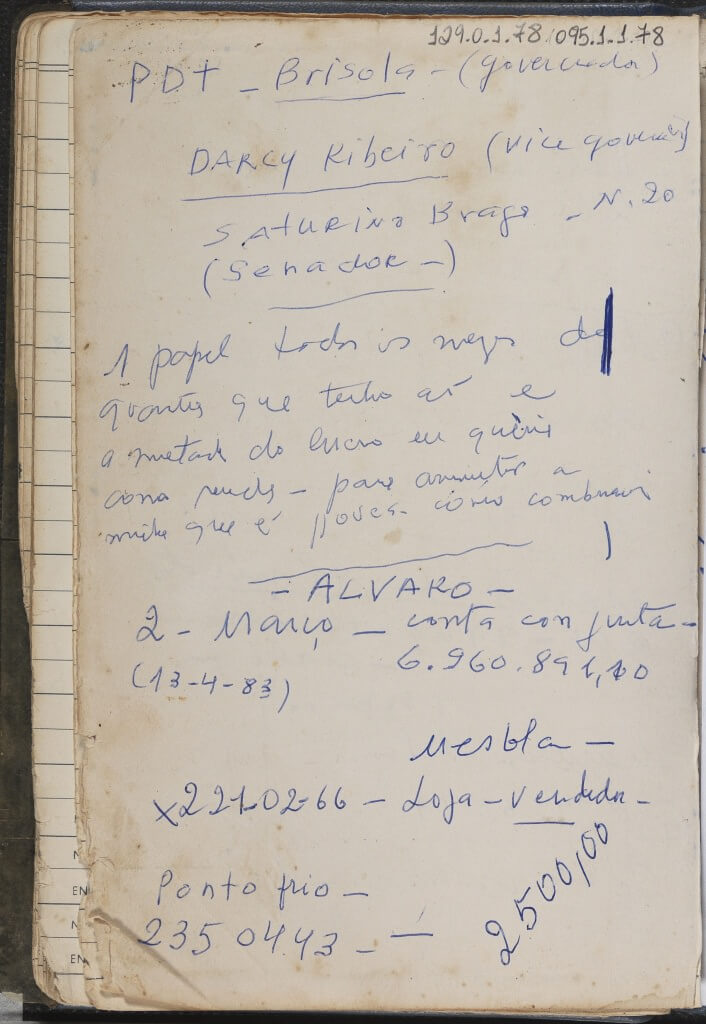 129.0.1.78/095.1.1.78
PDT - Brisola - (governador)
DARCY Ribeiro (vice governador)
SATURINO Braga - N. 20
(Senador -)
1 papel todos os mezes de
quantos que tenho aí e
a metade do lucro eu quero
como renda - para aumentar a
minha que é pouca como combinamos
- ALVARO -
2 - Março - conta conjunta -
(13-4-83) 6.960.891,10
Mesbla -
x221-02-66 - Loja - Vendedor -
Ponto frio -
235 0443 - -
2500,00